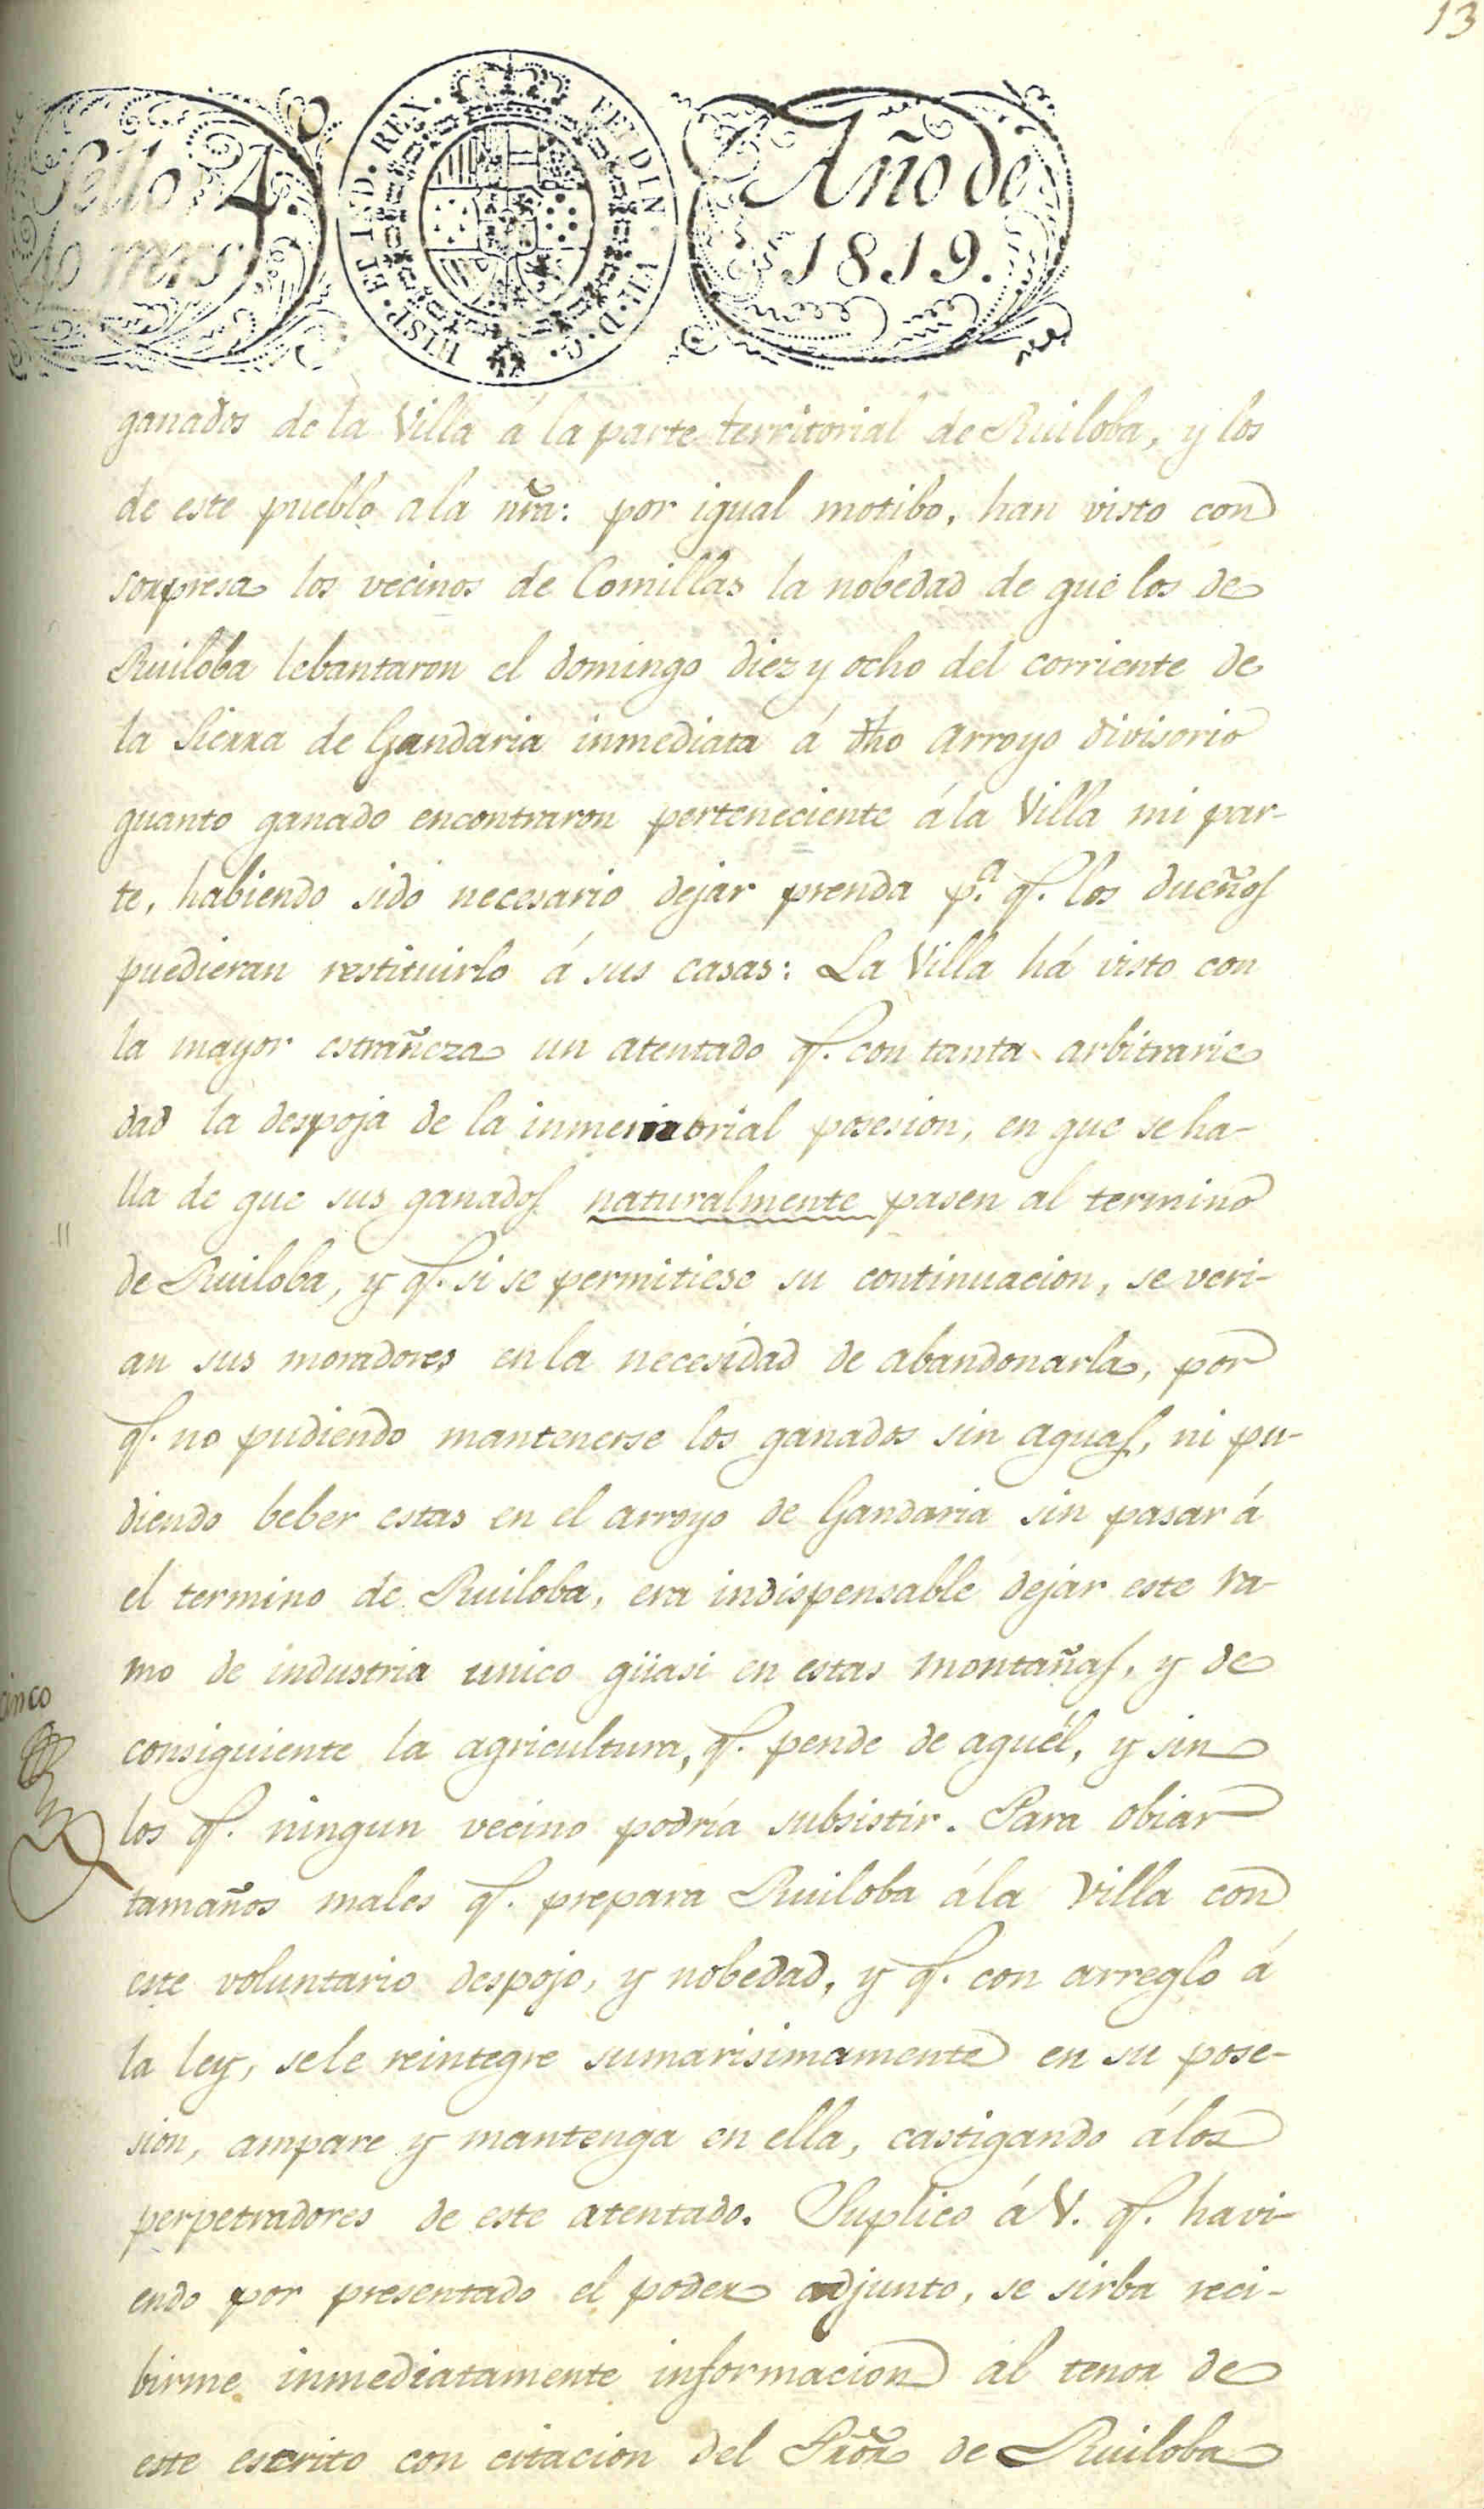 13
Sello 4.º
40 mrs
HISP. ET IND. REX. FERDIN. VII. D. G.
Año de
1819.
ganados de la Villa á la parte territorial de Ruiloba, y los
de este pueblo a la nrã: por igual motibo, han visto con
sorpresa los vecinos de Comillas la nobedad de que los de
Ruiloba lebantaron el domingo diez y ocho del corriente de
la Sierra de Gandaria inmediata á dho arroyo divisorio
quanto ganado encontraron perteneciente á la Villa mi par-
te, habiendo sido necesario dejar prenda p.ª q.e los dueños
puedieran restituirlo á sus casas: La Villa há visto con
la mayor estrañeza un atentado q.e con tanta arbitrarie
dad la despoja de la inmemorial posesion, en que se ha-
lla de que sus ganados naturalmente pasen al termino
de Ruiloba, y q.e si se permitiese su continuacion, se veri-
an sus moradores en la necesidad de abandonarla, por
q.e no pudiendo mantenerse los ganados sin aguas, ni pu-
diendo beber estas en el arroyo de Gandaria sin pasar á
el termino de Ruiloba, era indispensable dejar este ra-
mo de industria unico qüasi en estas montañas, y de
cinco
consiguiente la agricultura, q.e pende de aquél, y sin
los q.e ningun vecino podría subsistir. Para obiar
tamaños males q.e prepara Ruiloba á la Villa con
este voluntario despojo, y nobedad, y q.e con arreglo á
la ley, sele reintegre sumarisimamente en su pose-
sion, ampare y mantenga en ella, castigando á los
perpetradores de este atentado. Suplico á V. q.e havi-
endo por presentado el poder adjunto, se sirba reci-
birme inmediatamente informacion al tenor de
este escrito con citacion del Prõr de Ruiloba